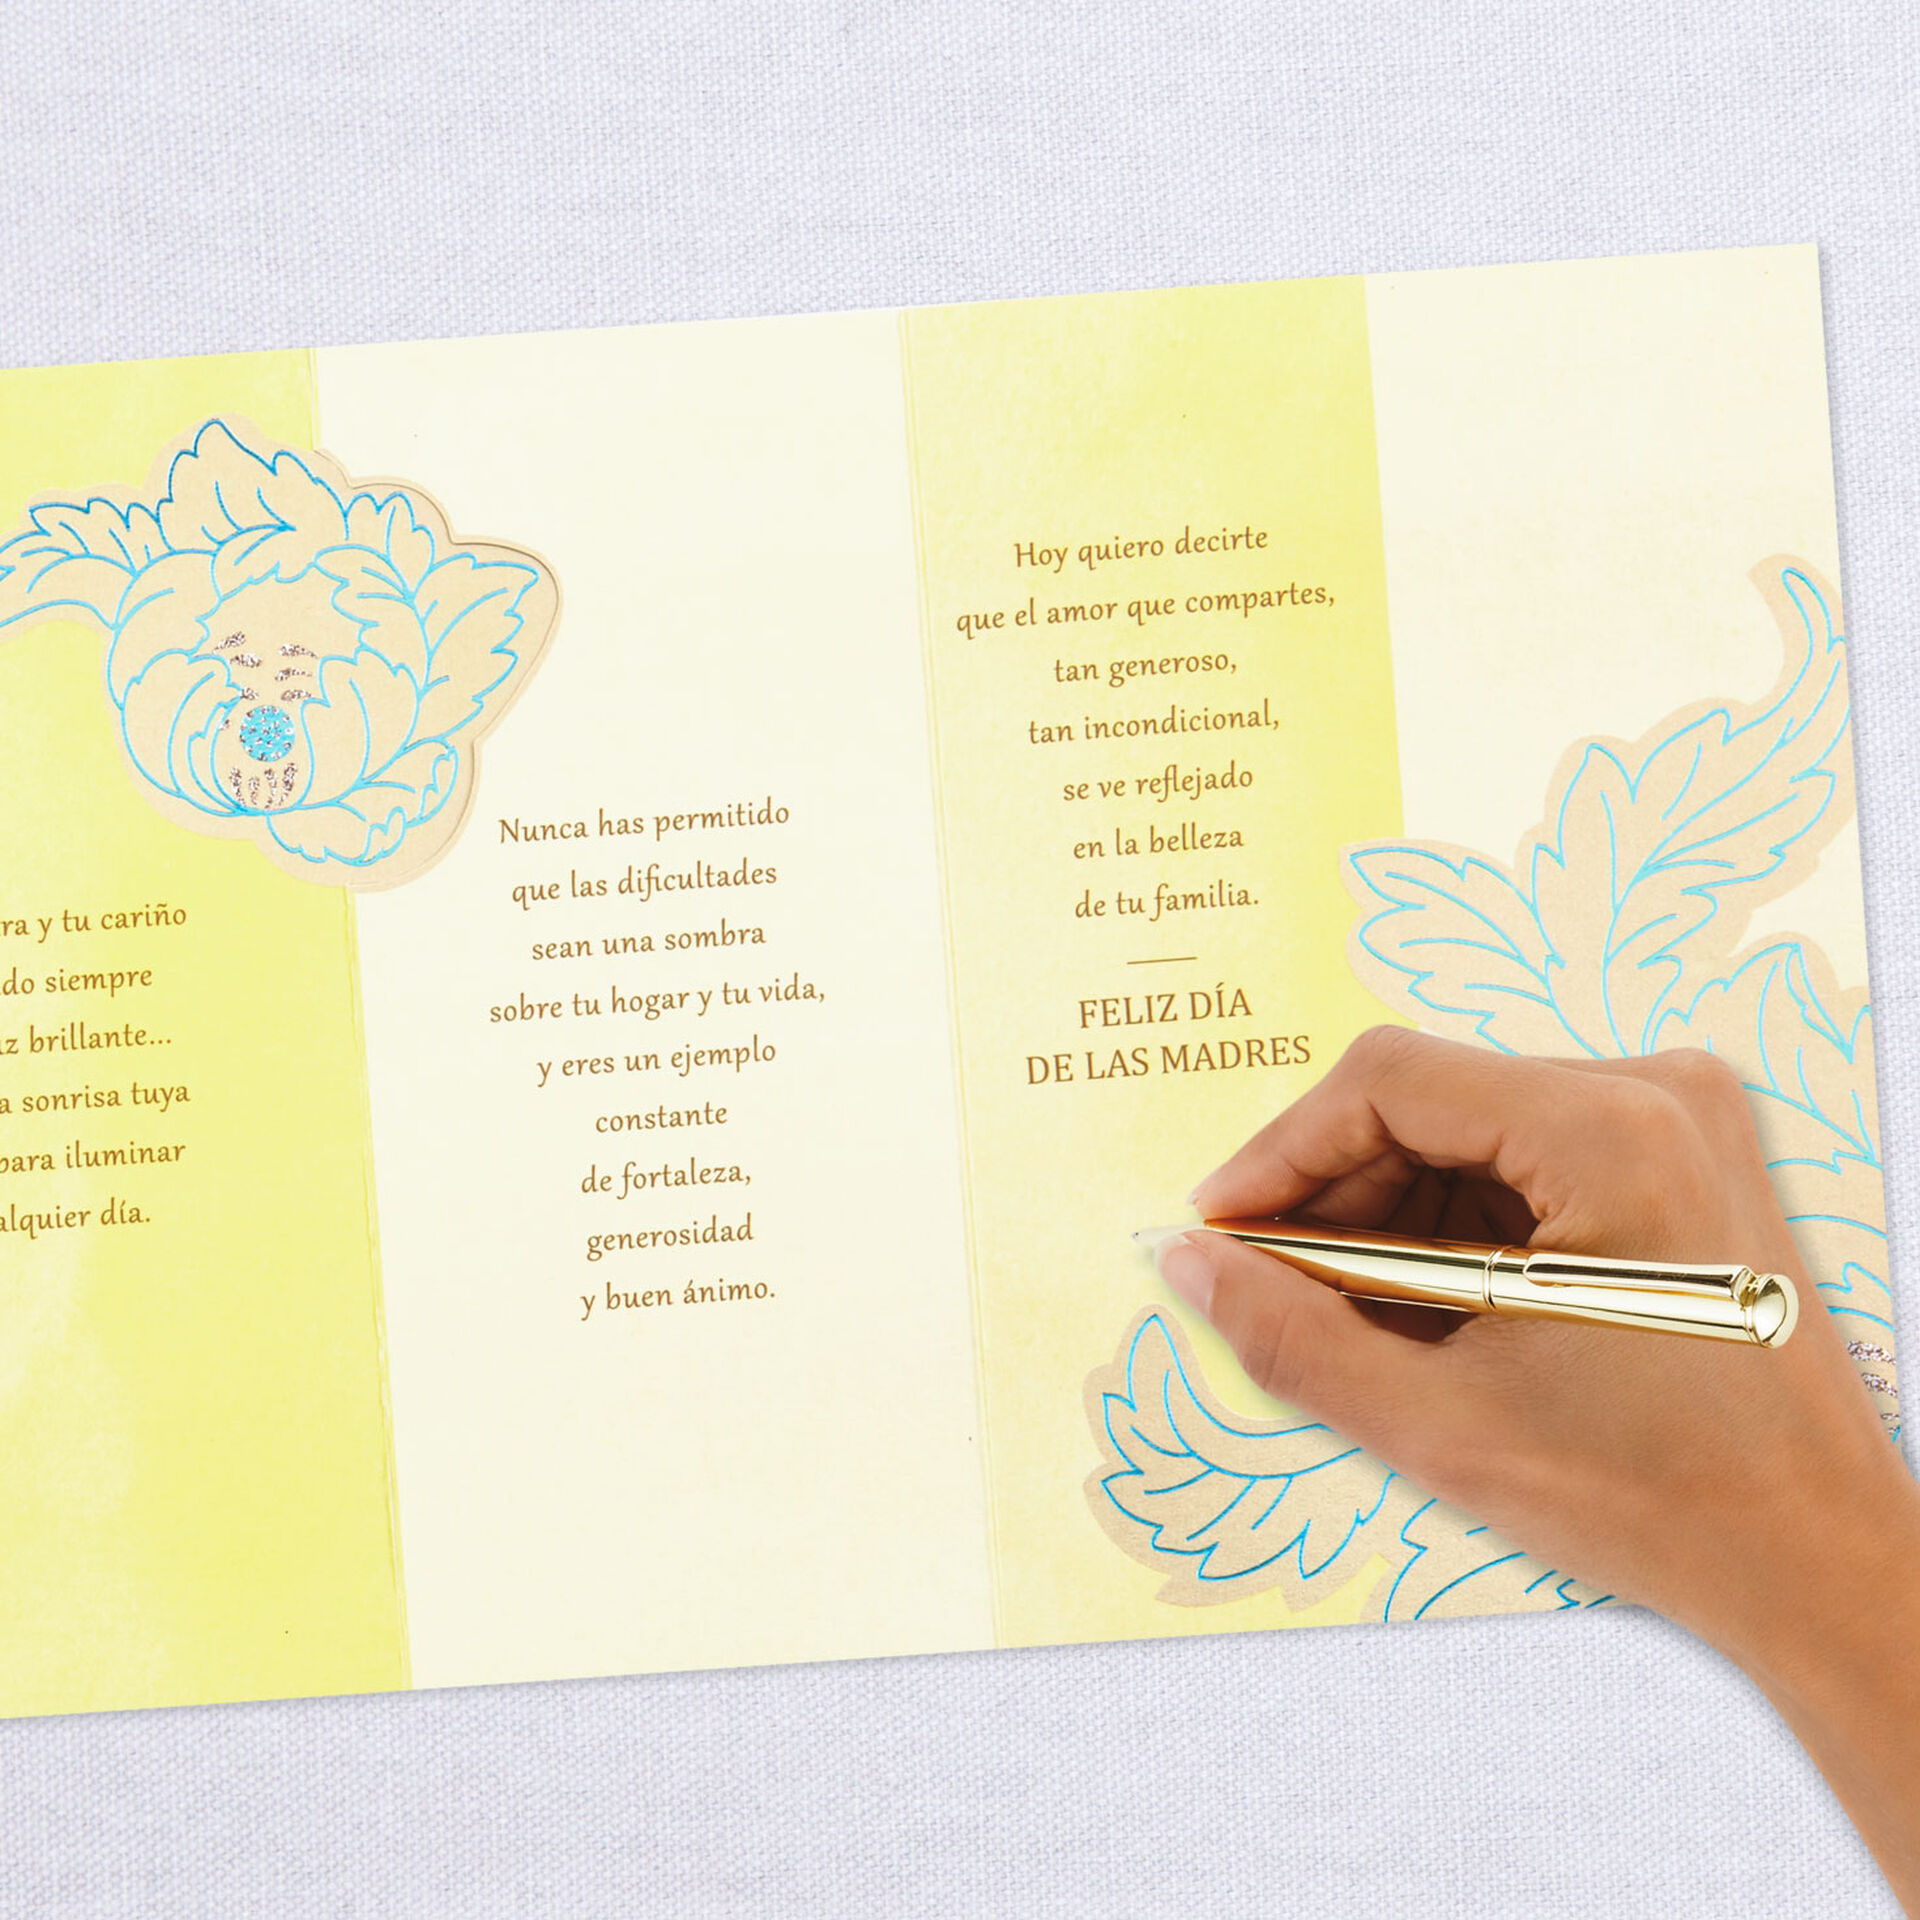 y tu cariño
siempre
brillante...
sonrisa tuya
para iluminar
día.
Nunca has permitido
que las dificultades
sean una sombra
sobre tu hogar y tu vida,
y eres un ejemplo
constante
de fortaleza,
generosidad
y buen ánimo.
Hoy quiero decirte
que el amor que compartes,
tan generoso,
tan incondicional,
se ve reflejado
en la belleza
de tu familia.
FELIZ DÍA
DE LAS MADRES